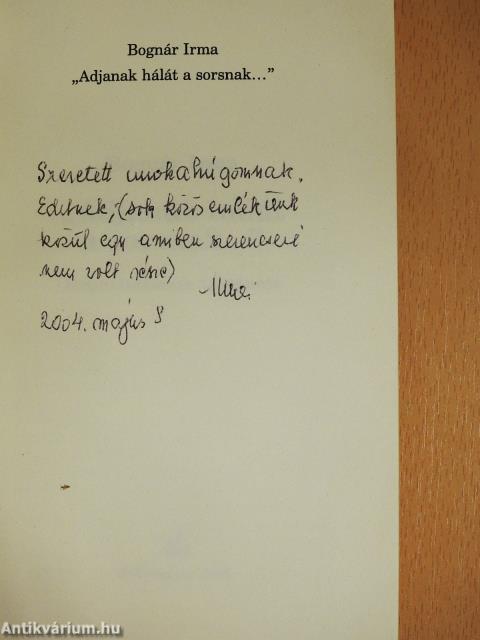 Bognár Irma
„Adjanak hálát a sorsnak..."
Szeretett unokahúgomnak,
Editnek, (sok közös emlékünk
közül egy amiben szerencsére
nem volt része)
2004. május
Antikvárium.hu